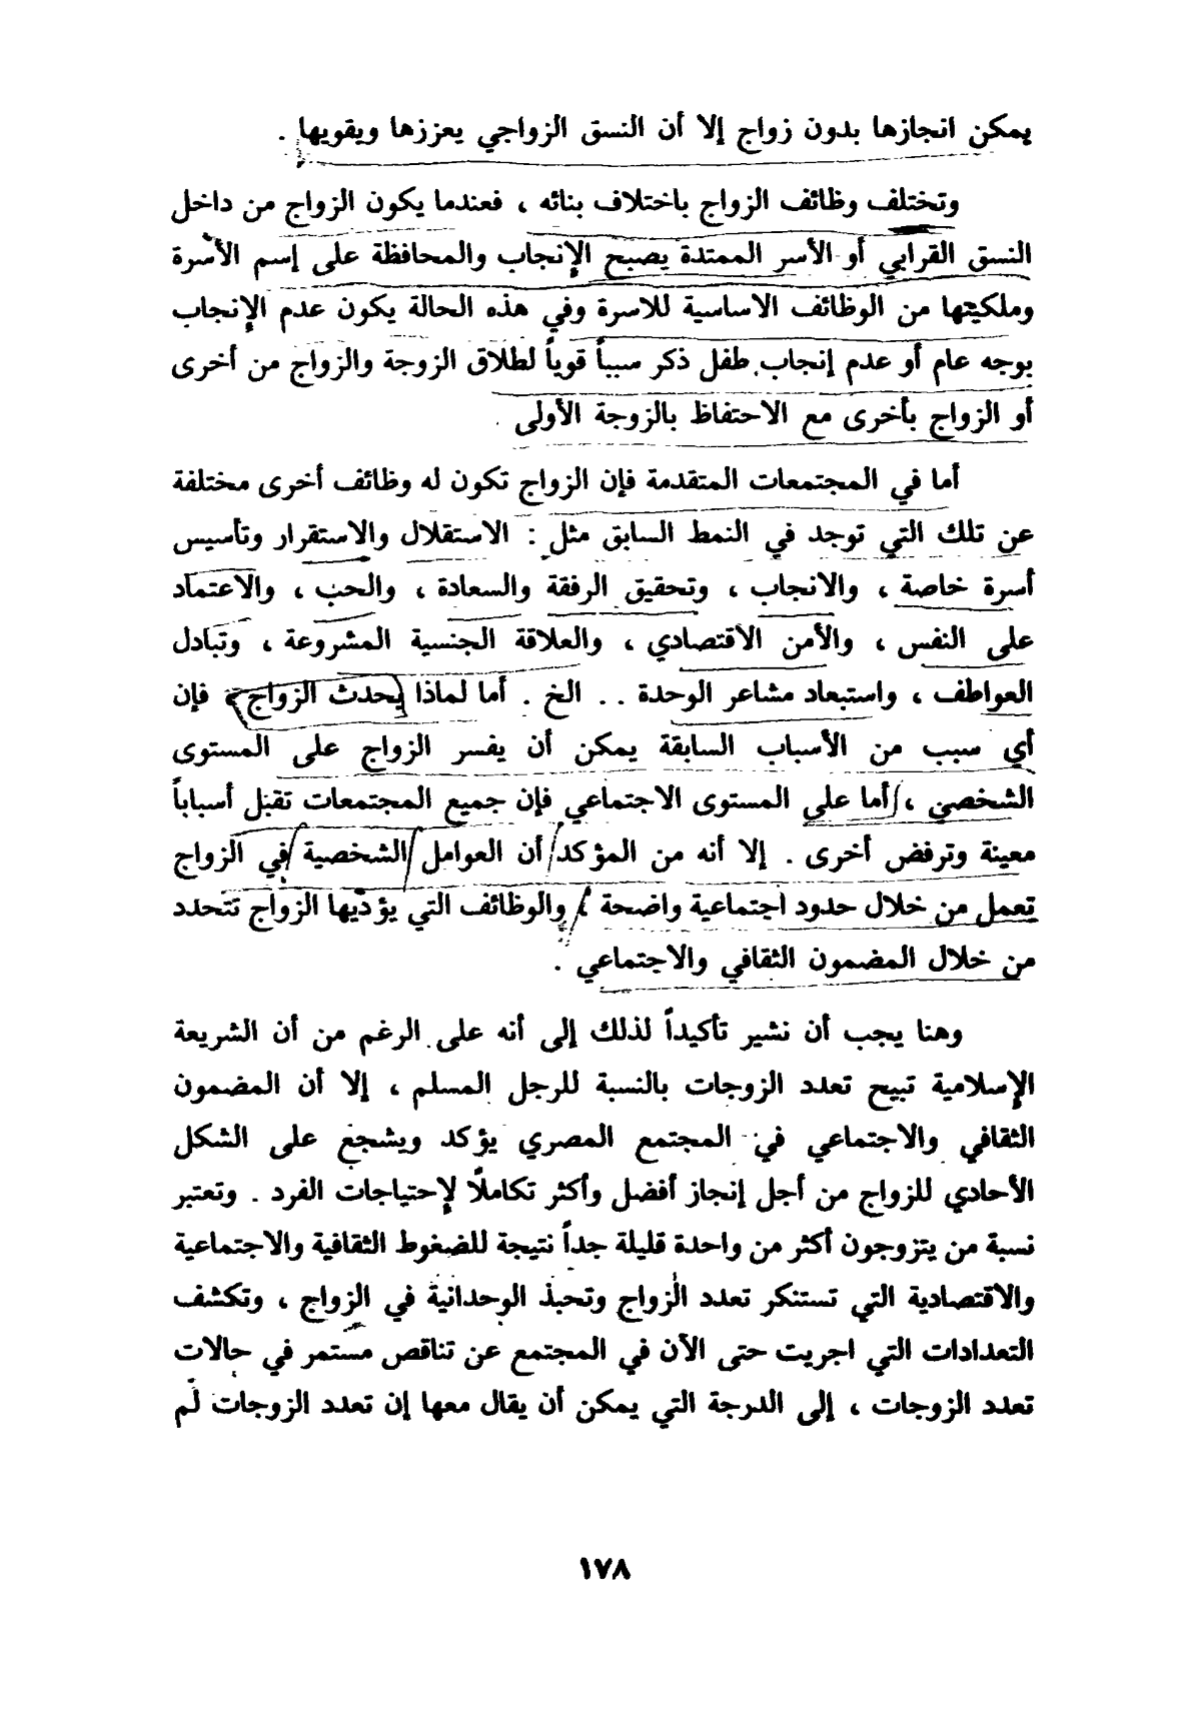 يمكن انجازها بدون زواج إلا أن النسق الزواجي يعززها ويقويها .
وتختلف وظائف الزواج باختلاف بنائه ، فعندما يكون الزواج من داخل
النسق القرابي أو الأسر الممتدة يصبح الإنجاب والمحافظة على إسم الأسرة
وملكيتها من الوظائف الاساسية للاسرة وفي هذه الحالة يكون عدم الإنجاب
بوجه عام أو عدم إنجاب طفل ذكر سبباً قوياً لطلاق الزوجة والزواج من أخرى
أو الزواج بأخرى مع الاحتفاظ بالزوجة الأولى .
أما في المجتمعات المتقدمة فإن الزواج تكون له وظائف أخرى مختلفة
عن تلك التي توجد في النمط السابق مثل : الاستقلال والاستقرار وتأسيس
أسرة خاصة ، والانجاب ، وتحقيق الرفقة والسعادة ، والحب ، والاعتماد
على النفس ، والأمن الاقتصادي ، والعلاقة الجنسية المشروعة ، وتبادل
العواطف ، واستبعاد مشاعر الوحدة .. الخ . أما لماذا يحدث الزواج ، فإن
أي سبب من الأسباب السابقة يمكن أن يفسر الزواج على المستوى
الشخصي ، أما على المستوى الاجتماعي فإن جميع المجتمعات تقبل أسباباً
معينة وترفض أخرى . إلا أنه من المؤكد أن العوامل الشخصية في الزواج
تعمل من خلال حدود اجتماعية واضحة ، والوظائف التي يؤديها الزواج تتحدد
من خلال المضمون الثقافي والاجتماعي .
وهنا يجب أن نشير تأكيداً لذلك إلى أنه على الرغم من أن الشريعة
الإسلامية تبيح تعدد الزوجات بالنسبة للرجل المسلم ، إلا أن المضمون
الثقافي والاجتماعي في المجتمع المصري يؤكد ويشجع على الشكل
الأحادي للزواج من أجل إنجاز أفضل وأكثر تكاملاً لإحتياجات الفرد . وتعتبر
نسبة من يتزوجون أكثر من واحدة قليلة جداً نتيجة للضغوط الثقافية والاجتماعية
والاقتصادية التي تستنكر تعدد الزواج وتحبذ الوحدانية في الزواج ، وتكشف
التعدادات التي اجريت حتى الآن في المجتمع عن تناقص مستمر في حالات
تعدد الزوجات ، إلى الدرجة التي يمكن أن يقال معها إن تعدد الزوجات لم
١٧٨